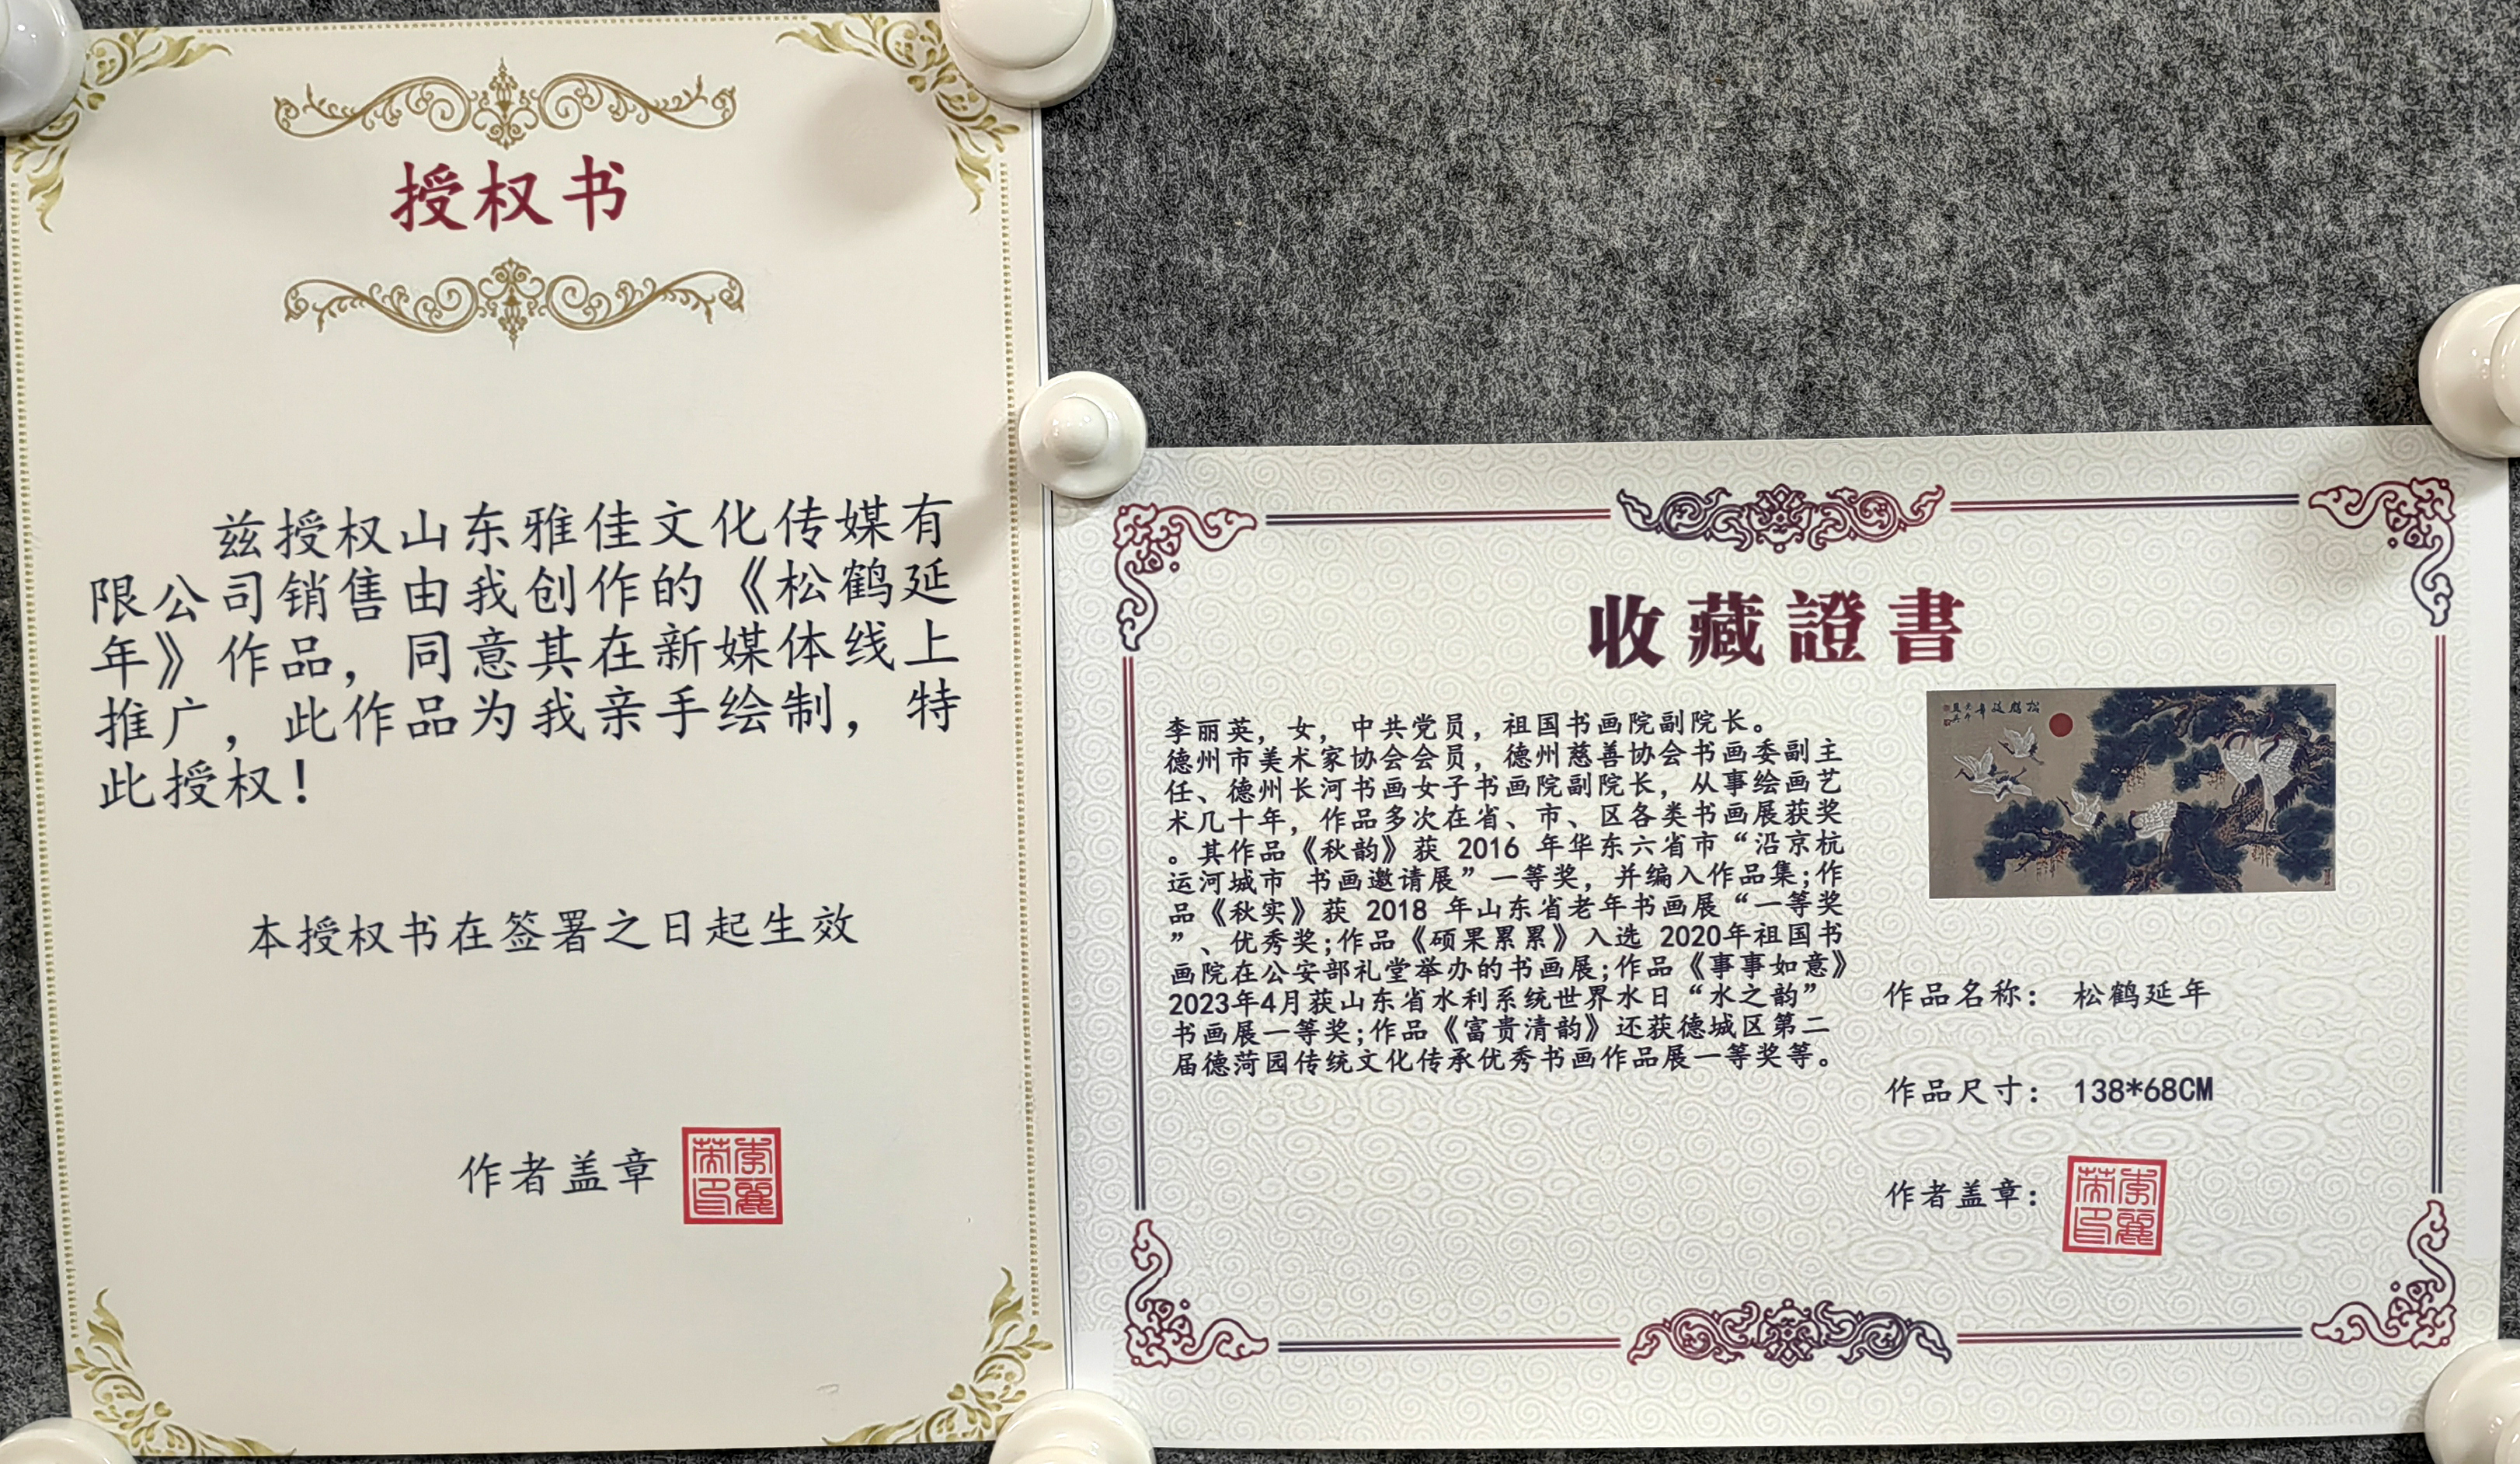 授权书
兹授权山东雅佳文化传媒有
限公司销售由我创作的《松鹤延
年》作品，同意其在新媒体线上
推广，此作品为我亲手绘制，特
此授权！
本授权书在签署之日起生效
作者盖章
收藏證書
李丽英，女，中共党员，祖国书画院副院长。
德州市美术家协会会员，德州慈善协会书画委副主
任、德州长河书画女子书画院副院长，从事绘画艺
术几十年，作品多次在省、市、区各类书画展获奖
。其作品《秋韵》获 2016 年华东六省市“沿京杭
运河城市 书画邀请展”一等奖，并编入作品集;作
品《秋实》获 2018 年山东省老年书画展“一等奖
”、优秀奖;作品《硕果累累》入选 2020年祖国书
画院在公安部礼堂举办的书画展;作品《事事如意》
2023年4月获山东省水利系统世界水日“水之韵”
书画展一等奖;作品《富贵清韵》还获德城区第二
届德菏园传统文化传承优秀书画作品展一等奖等。
作品名称： 松鹤延年
作品尺寸： 138*68CM
作者盖章：